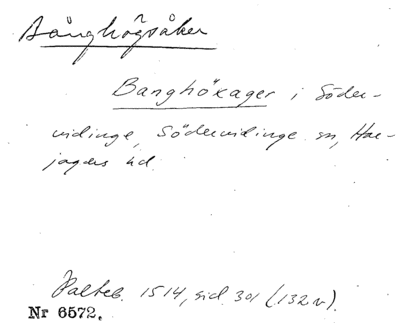 Bånghögsåker
Banghöxager i Söder-
vidinge, Södervidinge sn, Har-
jagers hd.
Palteb. 1514, sid. 301 (132 v).
Nr 6572.